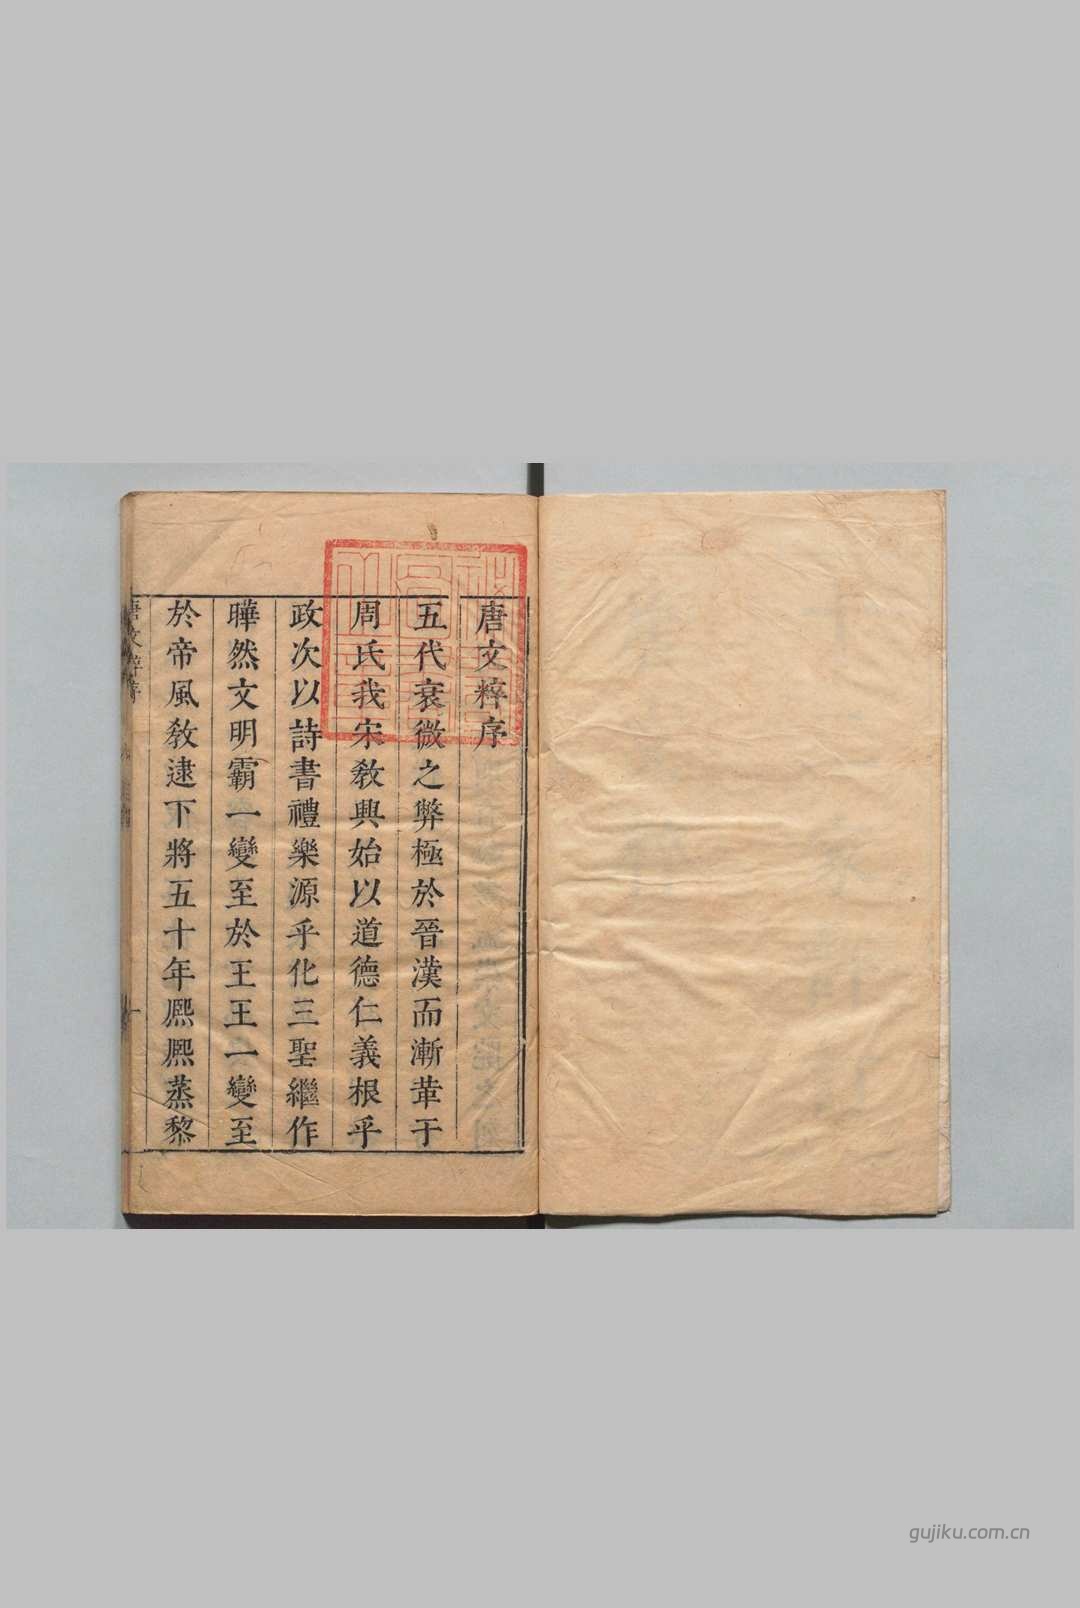 唐文粹序
五代衰微之弊極於晉漢而漸革于
周氏我宋敎興始以道德仁義根乎
政次以詩書禮樂源乎化三聖繼作
曄然文明霸一變至於王王一變至
於帝風敎逮下將五十年熈熈蒸黎
唐文粹序
gujiku.com.cn